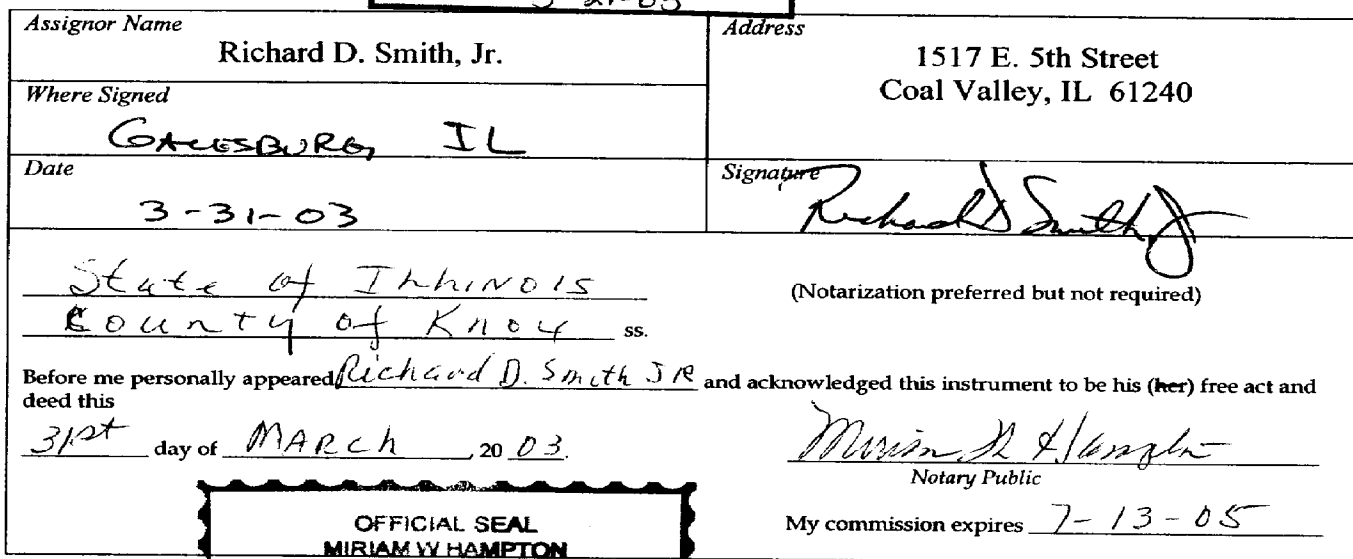 Assignor Name
Richard D. Smith, Jr.
Address
1517 E. 5th Street
Coal Valley, IL 61240
Where Signed
GALESBURG, IL
Date
3-31-03
Signature
Richard D Smith Jr
State of Illinois
County of Knox ss.
(Notarization preferred but not required)
Before me personally appeared Richard D. Smith JR and acknowledged this instrument to be his (her) free act and
deed this
31st day of MARCh, 20 03.
Miriam W Hampton
Notary Public
My commission expires 7-13-05
OFFICIAL SEAL
MIRIAM W HAMPTON